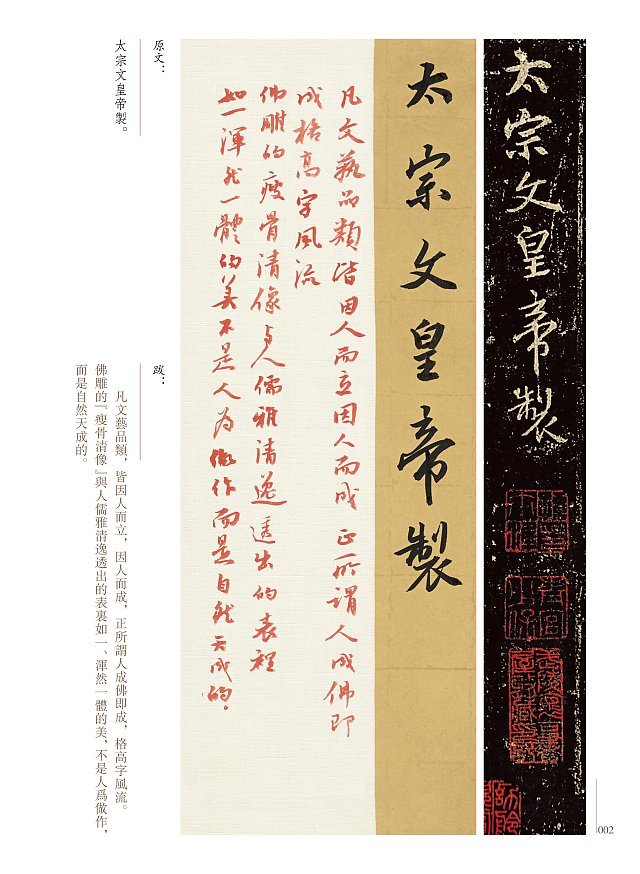 太宗文皇帝製
太宗文皇帝製
凡文藝品類皆因人而立因人而成正所謂人成佛即
成格高字風流
佛雕的瘦骨清像与人儒雅清逸透出的表裡
如一渾然一體的美不是人为做作而是自然天成的。
原文：
太宗文皇帝製。
跋：
凡文藝品類，皆因人而立，因人而成，正所謂人成佛即成，格高字風流。
佛雕的『瘦骨清像』與人儒雅清逸透出的表裏如一、渾然一體的美，不是人爲做作，
而是自然天成的。
002